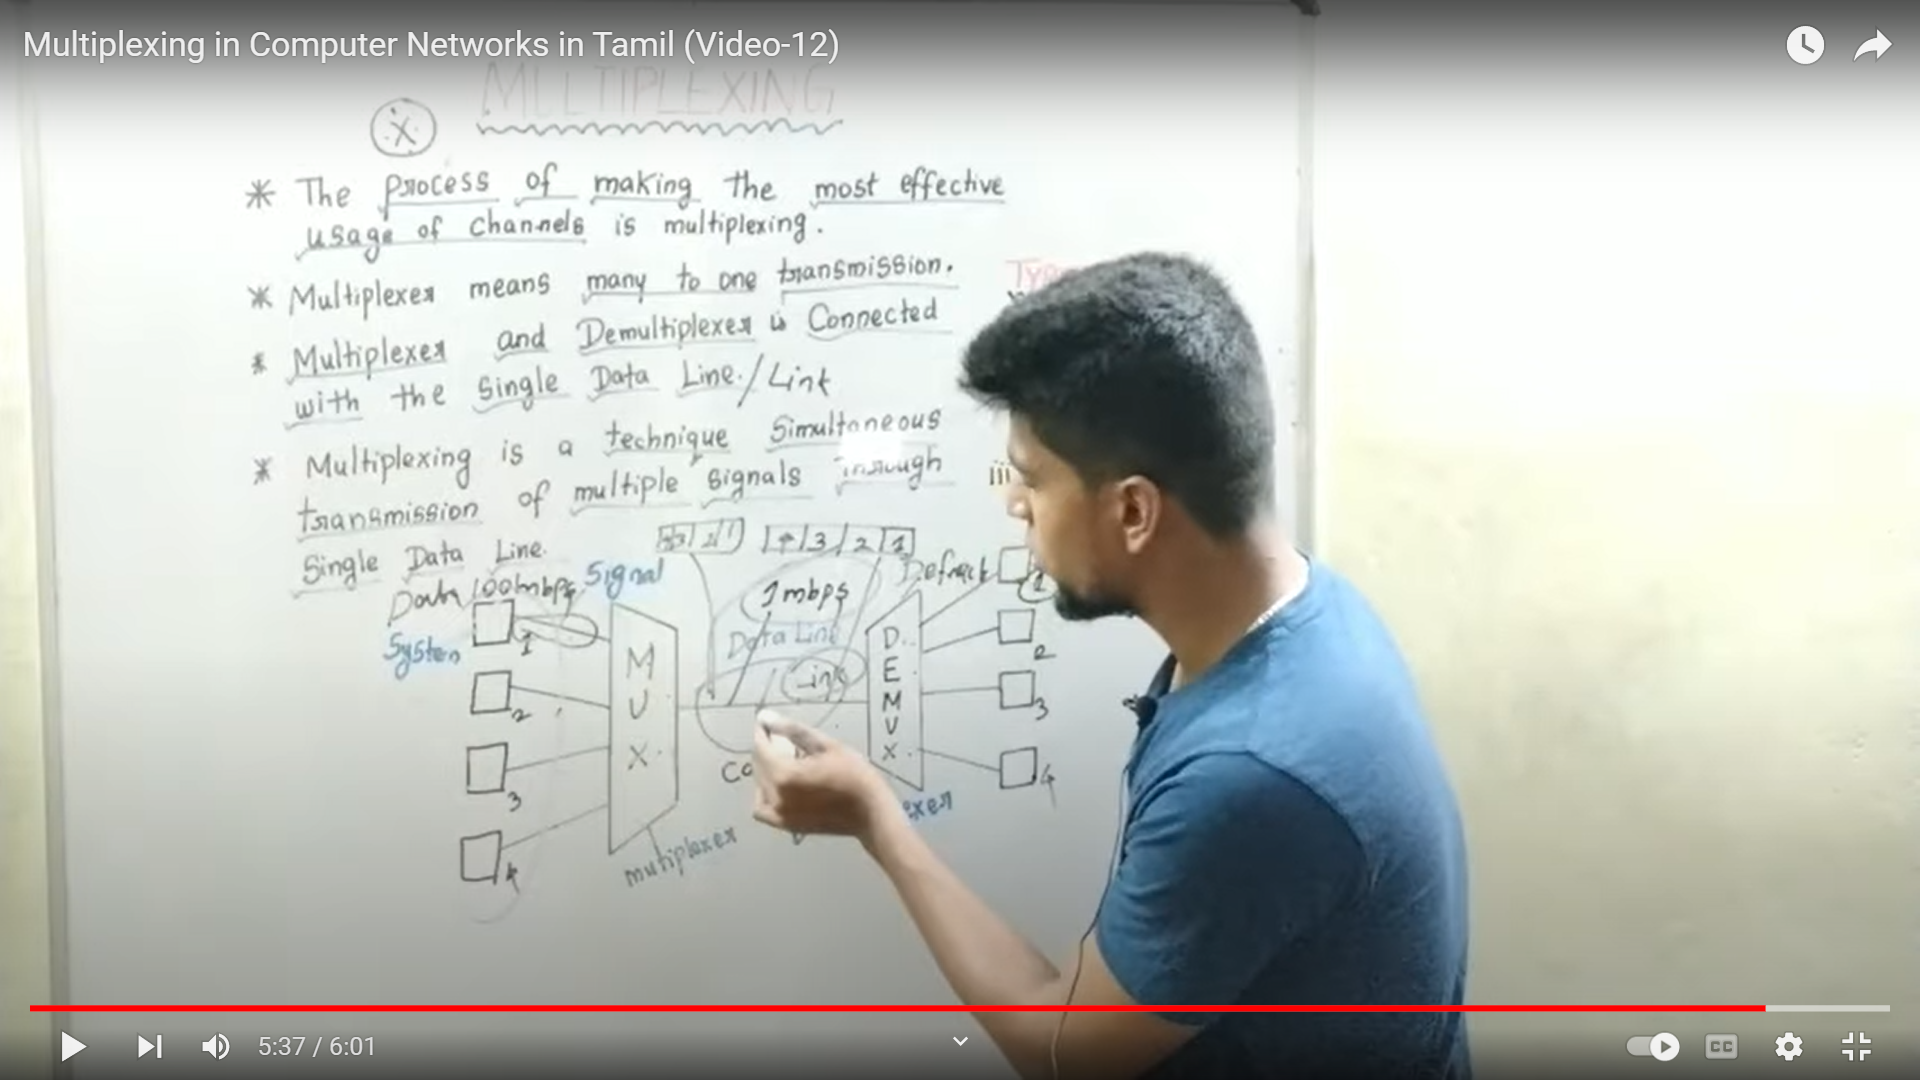 Multiplexing in Computer Networks in Tamil (Video-12)
MULTIPLEXING
X
* The process of making the most effective
usage of channels is multiplexing.
* Multiplexer means many to one transmission.
* Multiplexer and Demultiplexer is Connected
with the single Data Line./Link
* Multiplexing is a technique Simultaneous
transmission of multiple signals Through
Single Data Line.
iii
4 3 2 1
Data 100mbps Signal
1mbps
System
Data Line
Link
MUX
DEMUX
1
2
3
4
1
2
3
4
mutiplexer
5:37 / 6:01
CC